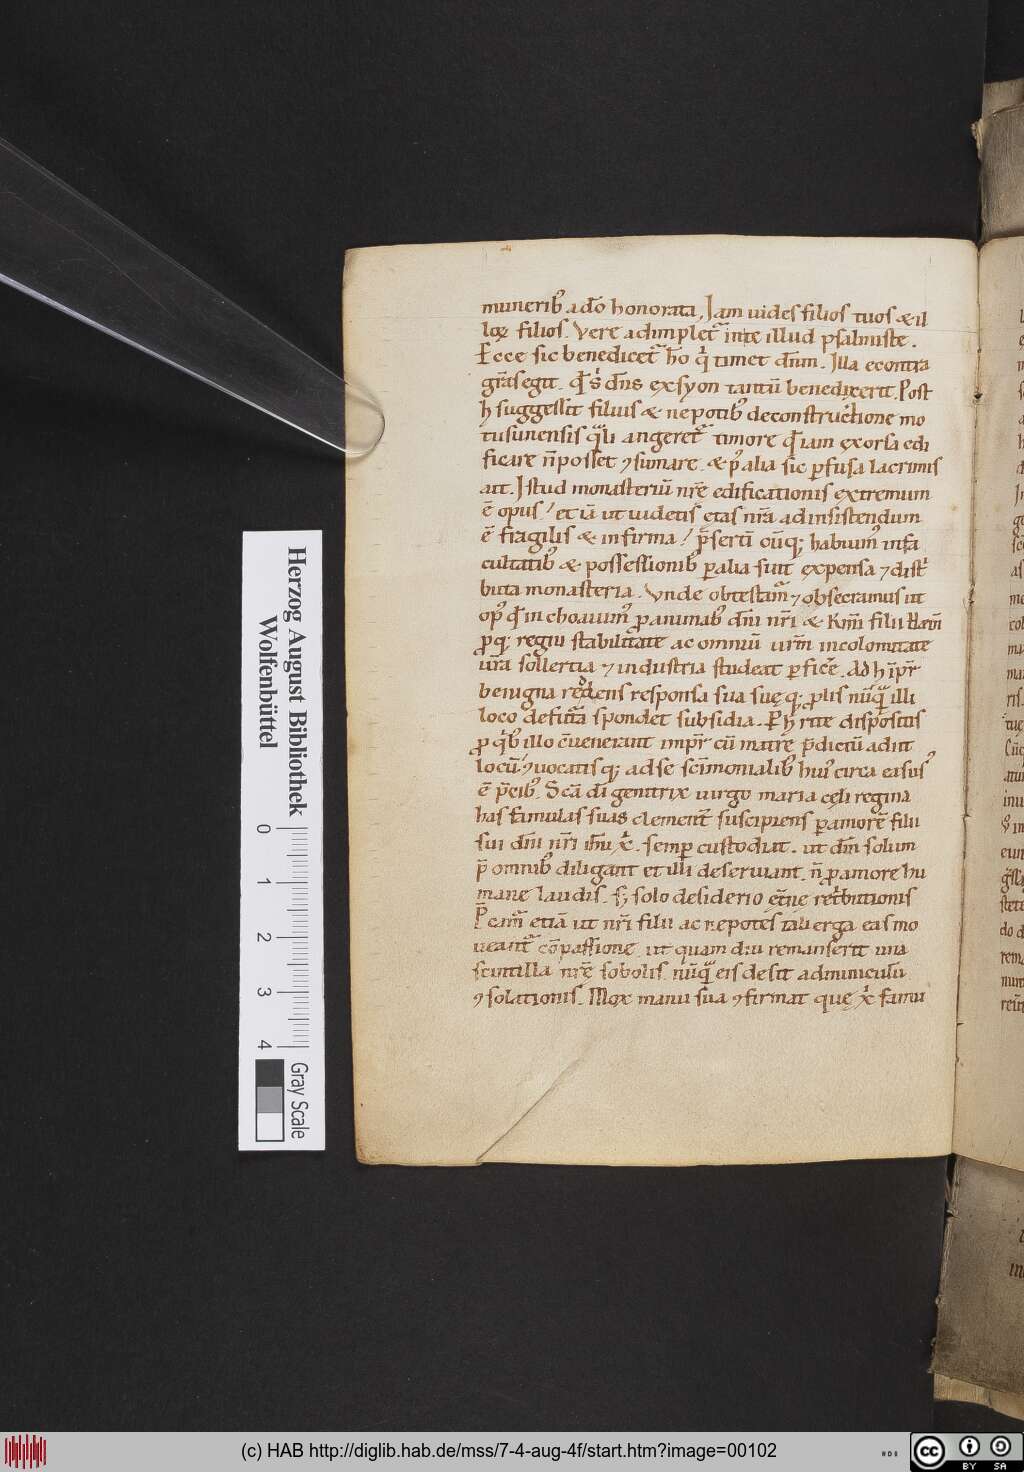 munerib᷒ a dō honorata. Jam uides filios tuos & il
loꝝ filios. Vere adimplet᷑ in te illud psalmiste.
Ecce sic benedicet᷑ hō q̇ timet dn̄m. Illa econtra
gr̄as egit. dn̄s exsyon tantū benedixerit. Post
h suggessit filius & nepotib᷒ deconstructione mo
angeret᷑ timore iam exorsa edi
ficare n̄ posset ꝯsumare. & p᷒ alia sic ꝑfusa lacrimis
ait. Istud monasteriū nr̄e edificationis extremum
ē opus! et ut uidetis etas nr̄a ad insistendum
ē fragilis & infirma! habitum᷒ in fa
cultatib᷒ & possessionib᷒ ꝑ alia sunt expensa ⁊ dist
buta monasteria. Vnde obtestam᷑ ⁊ obsecramus ut
op᷒ inchoauim᷒ ꝓ animab᷒ dn̄i nr̄i & filii
ꝓq; regni stabilitate ac omniū incolomitate
ur̄a sollertia ⁊ industria studeat ꝑficē. Ad h īpr̄
benigna reddens responsa sua suęq; ꝓlis nūq̄ illi
loco defut᷑a spondet subsidia. P᷒ h rite dispositis
ꝓ q̇b᷒ illo cōuenerant impr̄ cū matre p̄dictū adiit
locū. ⁊ uocatisq; ad se scīmonialib᷒ hui᷒ circa eas us᷒
ē p̄cib᷒. Scā dī genitrix uirgo maria cęli regina
has famulas suas clement̄ suscipiens ꝑ amorē filii
sui dn̄i nr̄i ih̄u x̄. semꝑ custodiat. ut dn̄m solum
p̄ omnib᷒ diligant et illi deseruiant. n̄ ꝓ amore hu
mane laudis. s; solo desiderio ęt̄ne ret̓butionis
P̄cam᷑ etiā ut nr̄i filii ac nepotes tali erga eas mo
ueant᷑ cōpassione. ut quam diu remanserit una
scintilla nr̄e sobolis. nūq̄ eis desit adminiculū
ꝯsolationis. Mox manu sua ꝯfirmat quę x̄ famu
Herzog August Bibliothek
Wolfenbüttel
0 1 2 3 4
Gray Scale
(c) HAB http://diglib.hab.de/mss/7-4-aug-4f/start.htm?image=00102
HAB
cc BY SA